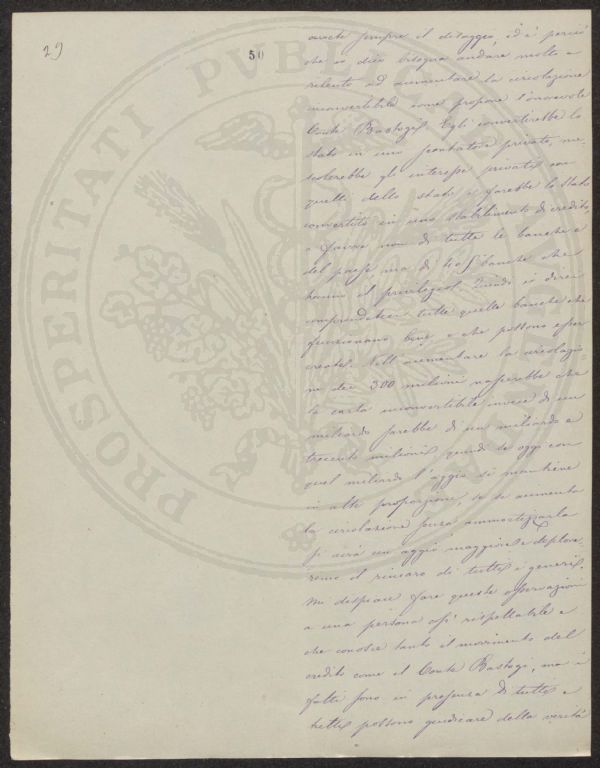 29
50
PROSPERITATI PVBLICAE
avrete sempre il disaggio, ed è perciò
che io dico bisogna andare molto a
rilento ad aumentare la circolazione
inconvertibile come propone l'onorevole
Conte Bastogi. Egli convertirebbe lo
stato in uno scontatore privato, me-
scolerebbe gli interessi privati con
quelli dello stato e farebbe lo stato
convertito in uno stabilimento di credito
a favore non di tutte le banche
del paese ma di 4 o 5 banche che
hanno il privilegio. Quindi io direi
comprendete tutte quelle banche che
funzionano bene e che possono esser
create. Nell'aumentare la circolazio-
ne dei 300 milioni nascerebbe che
la carta inconvertibile invece di un
miliardo sarebbe di un miliardo e
trecento milioni, quindi se oggi con
quel miliardo l'aggio si mantiene
in alte proporzioni, se si aumenta
la circolazione senza ammortizzarla
si avrà un aggio maggiore e deplore-
remo il rincaro di tutti i generi.
Mi dispiace fare queste osservazioni
a una persona così rispettabile e
che conosce tanto il movimento del
credito come il Conte Bastogi, ma i
fatti sono in presenza di tutti e
tutti possono giudicare della verità